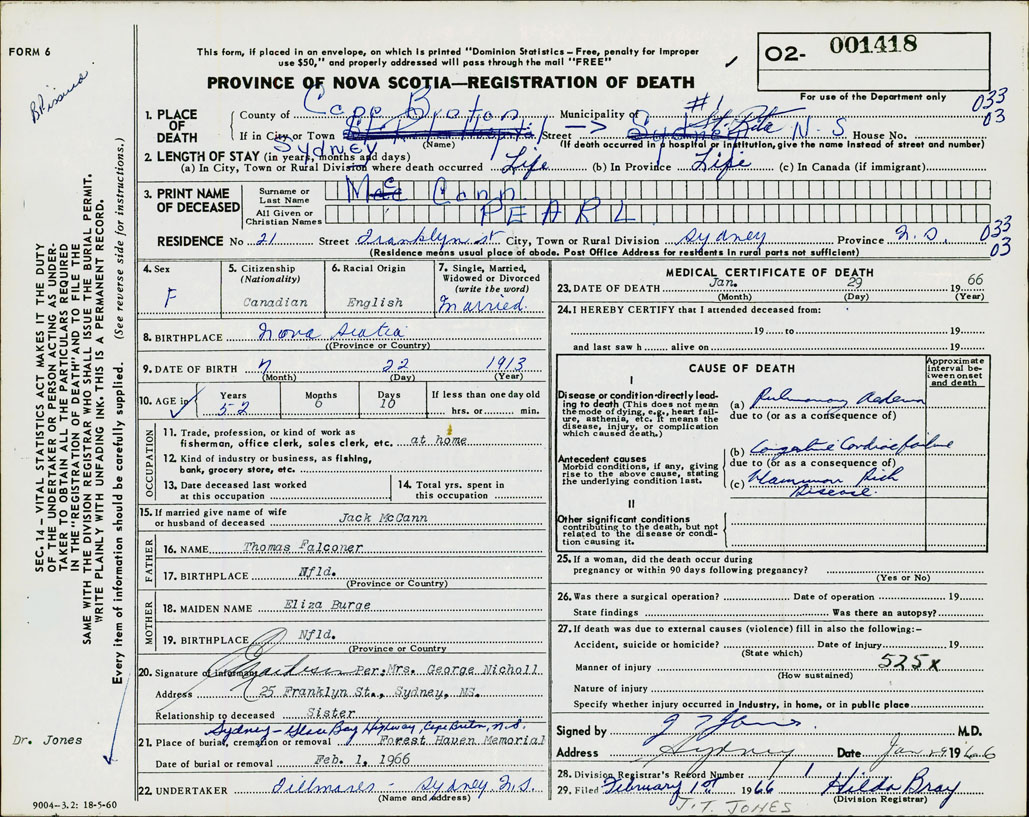 FORM 6
This form, if placed in an envelope, on which is printed "Dominion Statistics – Free, penalty for improper
use $50," and properly addressed will pass through the mail "FREE"
O2- 001418
For use of the Department only
PROVINCE OF NOVA SCOTIA—REGISTRATION OF DEATH
1. PLACE OF DEATH County of Cape Breton Municipality of #1 033
If in City or Town Sydney (Name) Street St. Rita N. S. House No. 03
(If death occurred in a hospital or institution, give the name instead of street and number)
2. LENGTH OF STAY (in years, months and days)
(a) In City, Town or Rural Division where death occurred Life (b) In Province Life (c) In Canada (if immigrant)
3. PRINT NAME OF DECEASED
Surname or Last Name Mc Cann
All Given or Christian Names PEARL
RESIDENCE No 21 Street Franklyn st City, Town or Rural Division Sydney Province N.S. 033
03
(Residence means usual place of abode. Post Office Address for residents in rural parts not sufficient)
4. Sex F
5. Citizenship (Nationality) Canadian
6. Racial Origin English
7. Single, Married, Widowed or Divorced (write the word) Married
8. BIRTHPLACE Nova Scotia
((Province or Country)
9. DATE OF BIRTH 7 22 1913
(Month) (Day) (Year)
10. AGE in Years 52 Months 6 Days 10 If less than one day old hrs. or min.
OCCUPATION
11. Trade, profession, or kind of work as
fisherman, office clerk, sales clerk, etc. at home
12. Kind of industry or business, as fishing,
bank, grocery store, etc.
13. Date deceased last worked
at this occupation
14. Total yrs. spent in
this occupation
15. If married give name of wife
or husband of deceased Jack McCann
FATHER
16. NAME Thomas Falconer
17. BIRTHPLACE Nfld.
(Province or Country)
MOTHER
18. MAIDEN NAME Eliza Burge
19. BIRTHPLACE Nfld.
(Province or Country)
20. Signature of informant Per. Mrs. George Nicholl
Address 25 Franklyn St., Sydney, NS.
Relationship to deceased Sister
Sydney - Glace Bay Highway, Cape Breton, N.S.
21. Place of burial, cremation or removal Forest Haven Memorial
Date of burial or removal Feb. 1, 1966
22. UNDERTAKER Fillmores - Sydney N.S.
(Name and address)
9004–3.2: 18-5-60
MEDICAL CERTIFICATE OF DEATH
23. DATE OF DEATH Jan. 29 19 66
(Month) (Day) (Year)
24. I HEREBY CERTIFY that I attended deceased from:
19 to 19
and last saw h alive on 19
CAUSE OF DEATH
Approximate interval between onset and death
I
Disease or condition directly leading to death (This does not mean
the mode of dying, e.g., heart failure, asthenia, etc. It means the
disease, injury, or complication
which caused death.)
(a) Pulmonary Aedema
due to (or as a consequence of)
Antecedent causes
Morbid conditions, if any, giving
rise to the above cause, stating
the underlying condition last.
(b) Congestive Cardiac failure
due to (or as a consequence of)
(c) Hamman Rich
Disease.
II
Other significant conditions
contributing to the death, but not
related to the disease or condition causing it.
25. If a woman, did the death occur during
pregnancy or within 90 days following pregnancy?
(Yes or No)
26. Was there a surgical operation? Date of operation 19
State findings Was there an autopsy?
27. If death was due to external causes (violence) fill in also the following:–
Accident, suicide or homicide? Date of injury 19
(State which)
Manner of injury 525x
(How sustained)
Nature of injury
Specify whether injury occurred in industry, in home, or in public place
Signed by J T Jones M.D.
Address Sydney Date Jan 29 1966
28. Division Registrar's Record Number 1
29. Filed February 1st 1966 Hilda Bray
(Division Registrar)
J.T. JONES
SEC. 14 – VITAL STATISTICS ACT MAKES IT THE DUTY
OF THE UNDERTAKER OR PERSON ACTING AS UNDERTAKER TO OBTAIN ALL THE PARTICULARS REQUIRED
IN THE "REGISTRATION OF DEATH" AND TO FILE THE
SAME WITH THE DIVISION REGISTRAR WHO SHALL ISSUE THE BURIAL PERMIT.
WRITE PLAINLY WITH UNFADING INK. THIS IS A PERMANENT RECORD.
Every item of information should be carefully supplied. (See reverse side for instructions.)
Dr. Jones